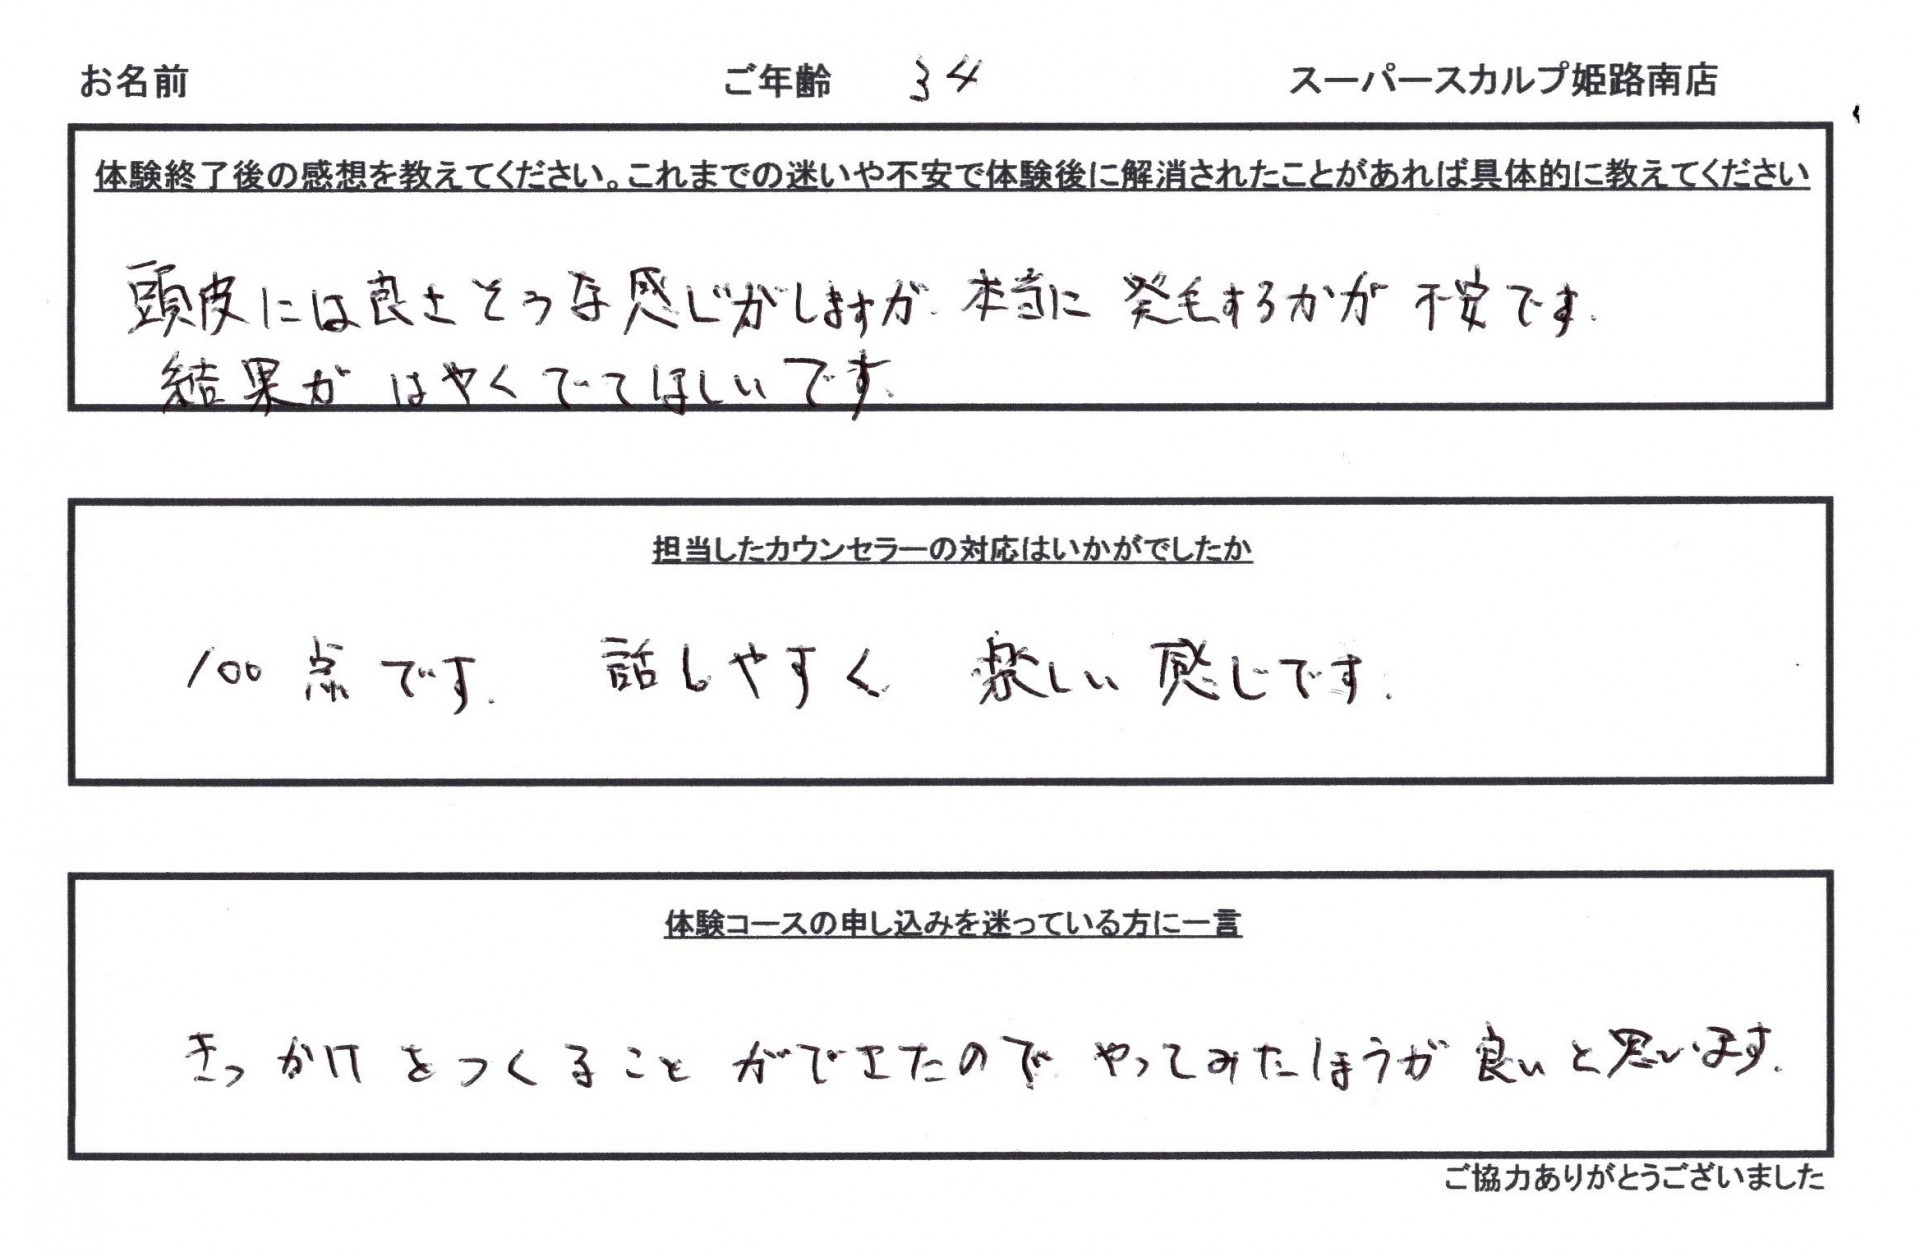 お名前 ご年齢 34 スーパースカルプ姫路南店
体験終了後の感想を教えてください。これまでの迷いや不安で体験後に解消されたことがあれば具体的に教えてください
頭皮には良さそうな感じがしますが、本当に発毛するかが不安です。
結果がはやくでてほしいです。
担当したカウンセラーの対応はいかがでしたか
100点です。 話しやすく 楽しい感じです。
体験コースの申し込みを迷っている方に一言
きっかけをつくることができたので、やってみたほうが良いと思います。
ご協力ありがとうございました